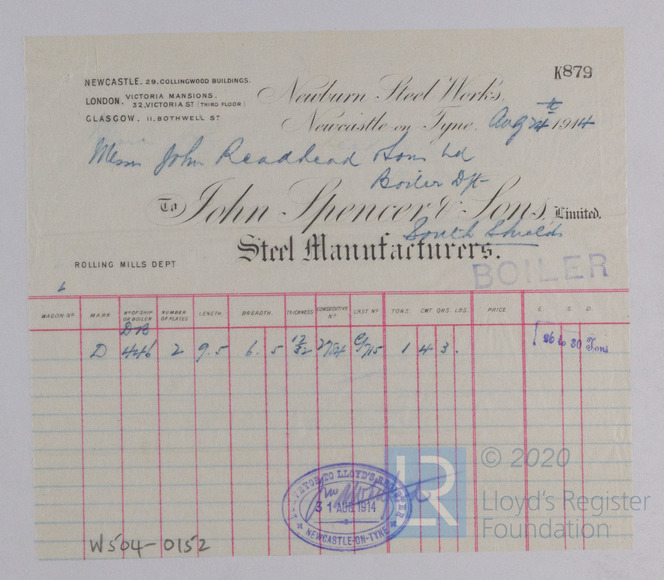 K879
NEWCASTLE. 29. COLLINGWOOD BUILDINGS.
LONDON. VICTORIA MANSIONS.
32, VICTORIA ST (THIRD FLOOR)
GLASGOW. 11, BOTHWELL ST
Newburn Steel Works,
Newcastle on Tyne, Aug 1914
Messrs John Readhead Sons Ld
Boiler Dpt
To John Spencer & Sons, Limited.
South Shields
Steel Manufacturers.
ROLLING MILLS DEPT
BOILER
WAGON No. MARK No OF SHIP OR BOILER NUMBER OF PLATES LENGTH. BREADTH. THICKNESS CONSECUTIVE No. CAST No TONS. CWT QRS. LBS. PRICE £. S. D.
DB
D 446 2 9.5 6.5 32 1 4 3 .
26 to 30 Tons
TO LLOYD'S REGISTER
31 AUG. 1914
NEWCASTLE-ON-TYNE
W504-0152
LR
© 2020
Lloyd's Register
Foundation